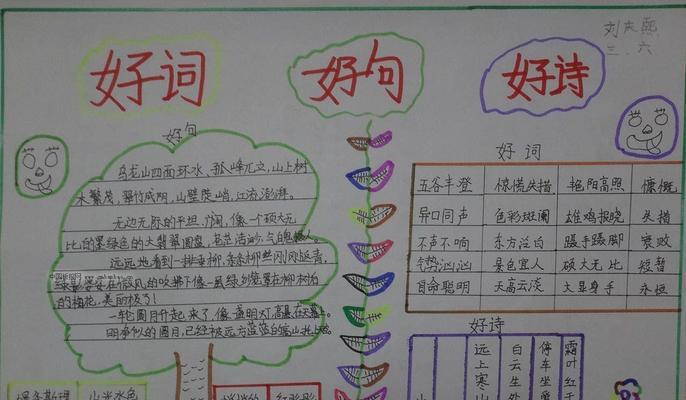 刘庆熙
三.六
好词
好句
好诗
好句
乌龙山四面环水、孤峰兀立,山上树
木繁茂,翠竹成阴,山壁陡峭,江涛澎湃。
无边无际的平坦广阔,像一个硕大无
比的墨绿色的大翡翠圆盘,苍茫浩渺,气
远远地看到一排垂柳,条条柳丝刚刚延青,
在微风的吹拂下像
的梅花,美丽极了!
一轮圆月升起来了,像一盏明灯,高悬在天幕上。
的圆月,已经被远方
好词
五谷丰登 惊慌失措 艳阳高照 慷慨
异口同声 色彩斑阑 雄鸡报晓 失措
不声不响 东方泛白 蹑手蹑脚 衰败
气势汹汹 景色宜人 硕大无比 短暂
自命聪明 天高云淡 大显身手 永恒
好诗
远上寒山
白云生处
停车坐爱
霜叶红于
山光水色